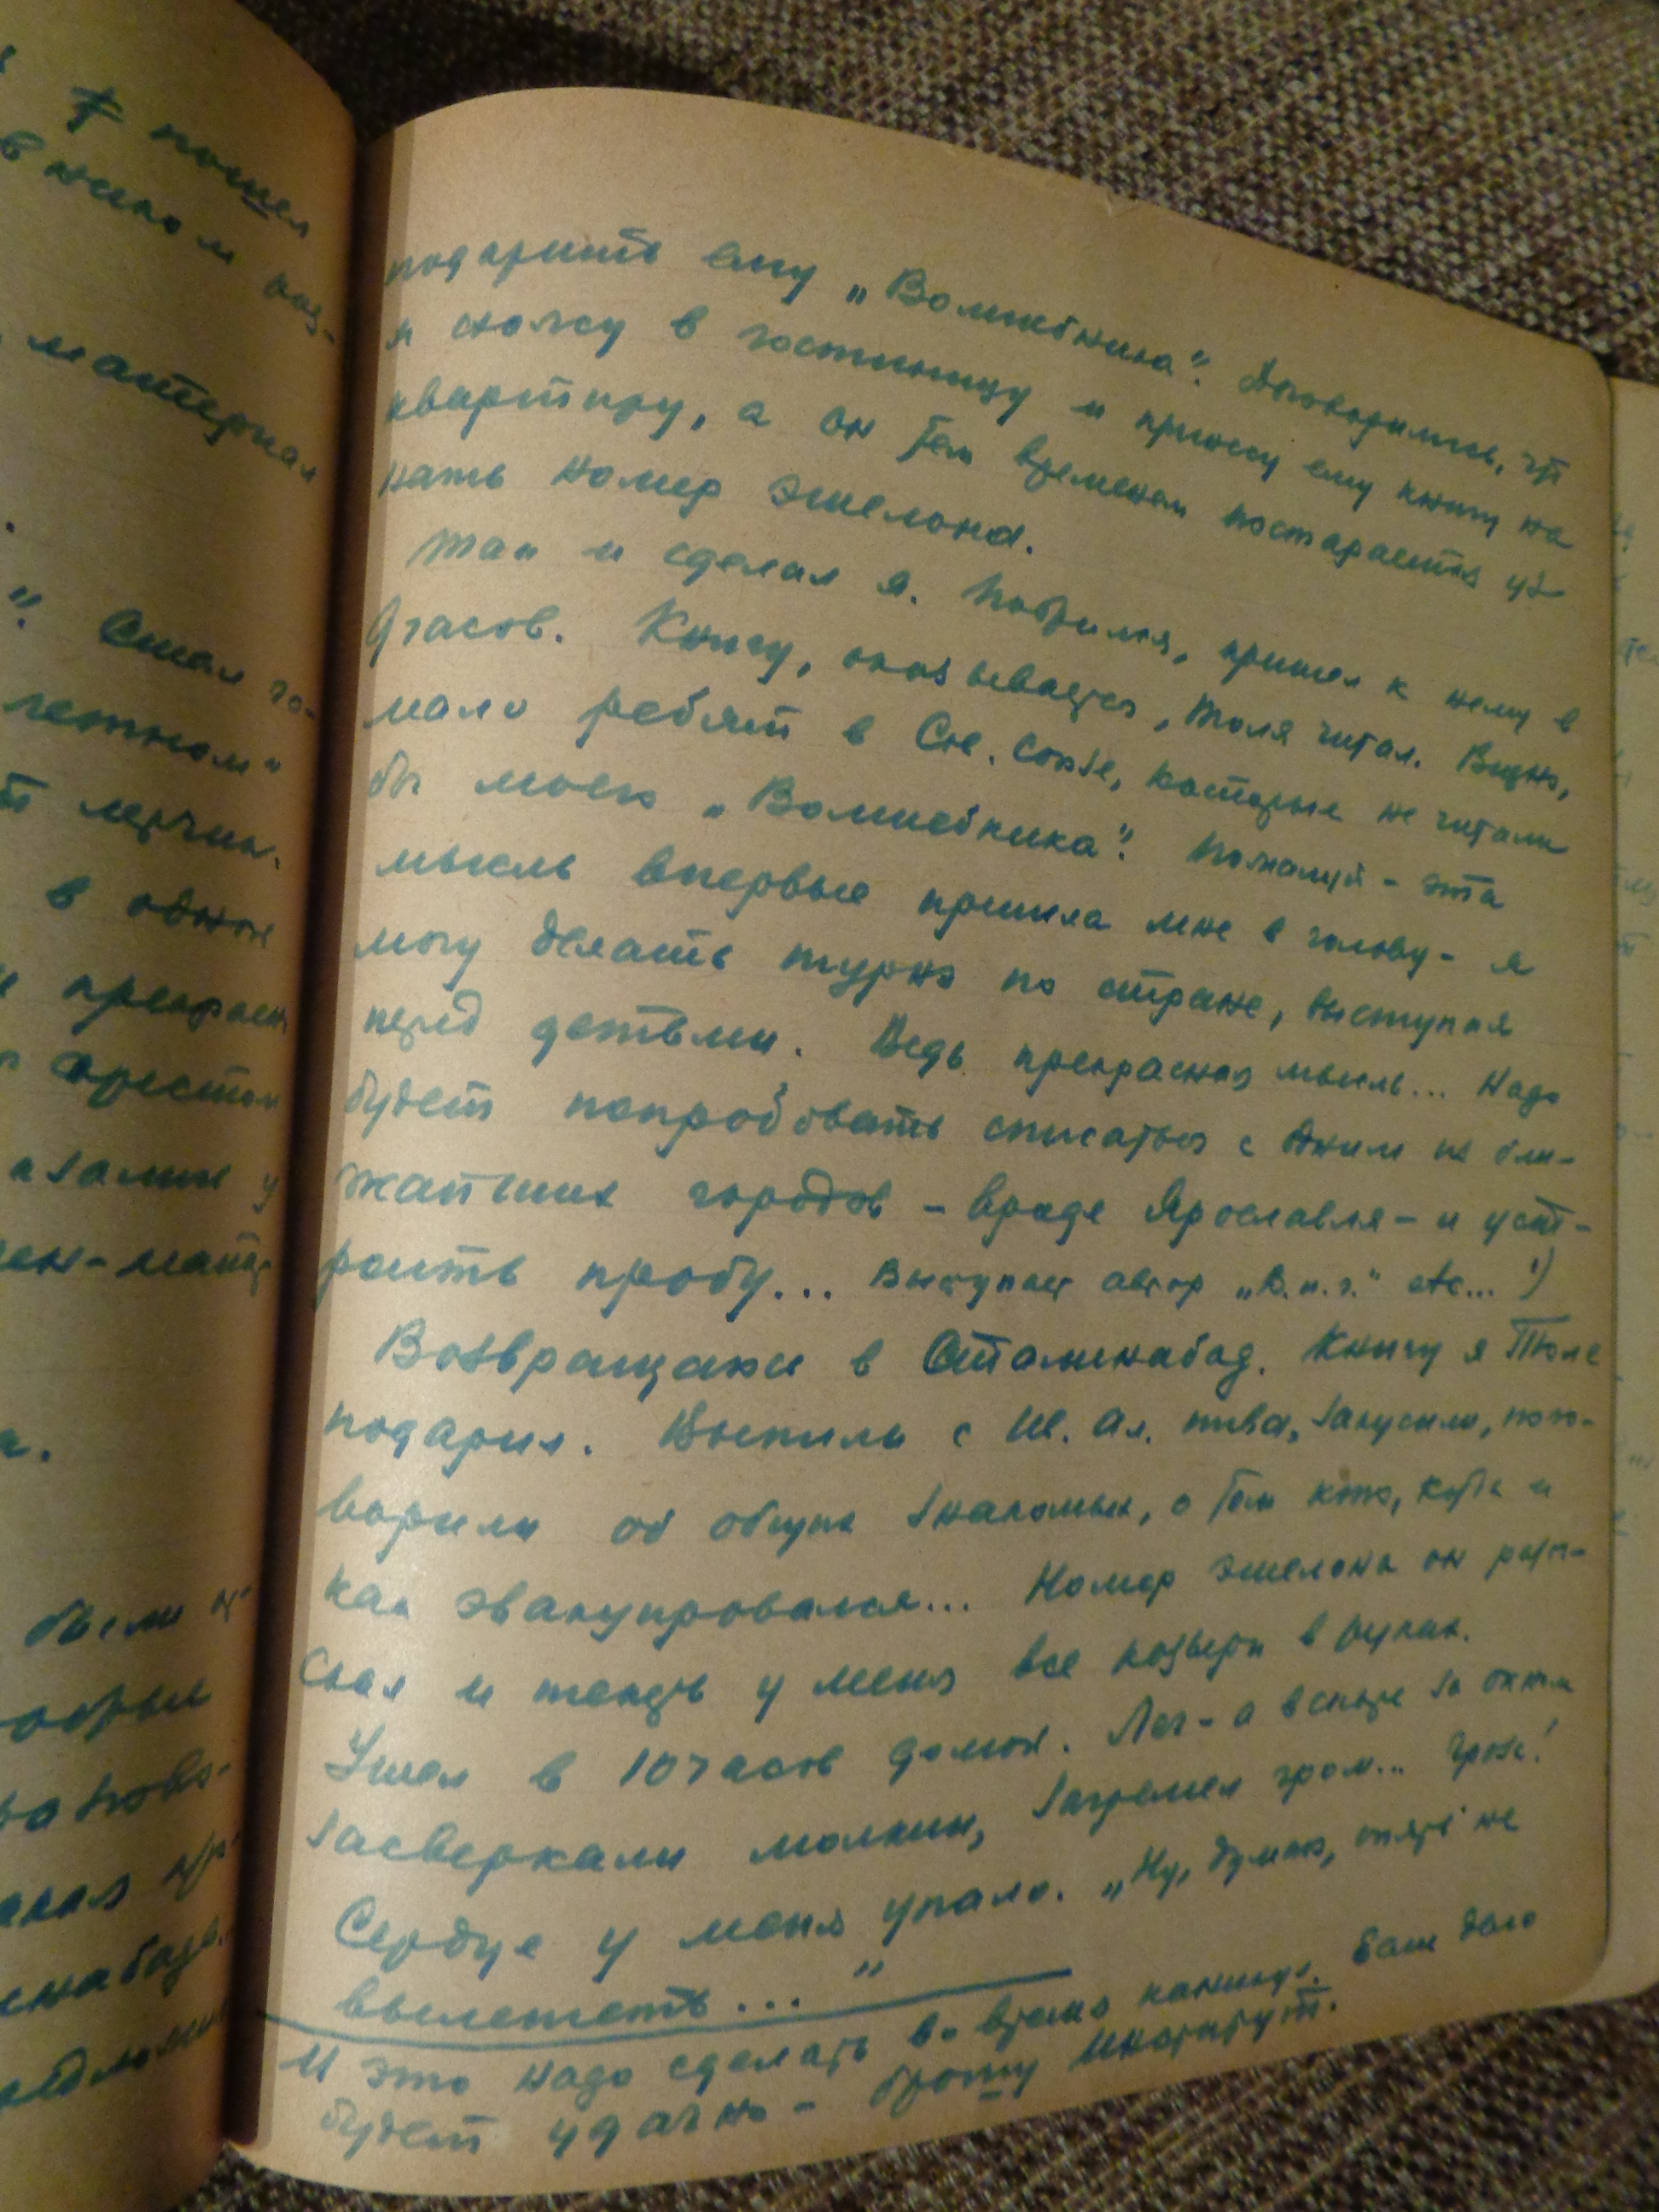 7 пошел
в ином
материал
"Стал го-
летном"
в одной
и прекрасн
азамин у
подарить ему „Волшебника“. Договорились, что
я схожу в гостиницу и принесу ему книгу на
квартиру, а он тем временем постарается уз-
нать номер эшелона.
Так и сделал я. Побрился, пришел к нему в
9 часов. Книгу, оказывается, Толя читал. Видно,
мало ребят в Сов. Союзе, которые не читали
бы моего „Волшебника“. Пожалуй – эта
мысль впервые пришла мне в голову – я
могу делать турнэ по стране, выступая
перед детьми. Ведь прекрасная мысль... Надо
будет попробовать списаться с одним из бли-
жайших городов – вроде Ярославля – и уст-
роить пробу... Выступает автор „В.и.г.“ etc... 1)
Возвращаюсь в Сталинабад. Книгу я Толе
подарил. Выпили с Ив. Ал. пива, закусили, пого-
ворили об общих знакомых, о том кто, куда и
как эвакуировался... Номер эшелона он разы-
скал и теперь у меня все козыри в руках.
Ушел в 10 часов домой. Лег – а вскоре за окном
засверкали молнии, загремел гром... Гроза!
Сердце у меня упало. „Ну, думаю, опять не
вылететь...“
И это надо сделать во время каникул. Если дело
будет удачно – брошу Институт.